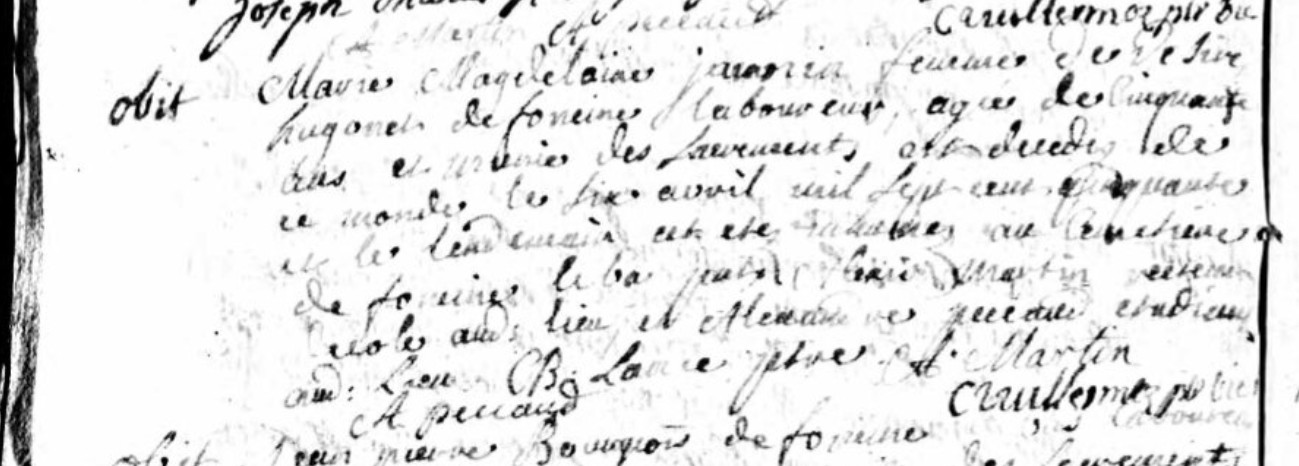 Joseph
A Martin A peccaud Cavullermoz ptr vic
obit Marie Magdelaine jannin femme de Desire
hugonet de foncine laboureur, agée de Cinquante
ans et munie des sacrements est decedée de
ce monde le six avril mil sept cent cinquante
et le lendemain at eté inhumée au Cimetiere
de foncine le bas Martin
ecole aud: lieu et Alexandre peccaud etudiant
aud: Lieu B: Lance ptre A. Martin
A peccaud Cavullermoz ptr vic
obit Jean pierre Bourgeois de foncine laboureur
des sacrements